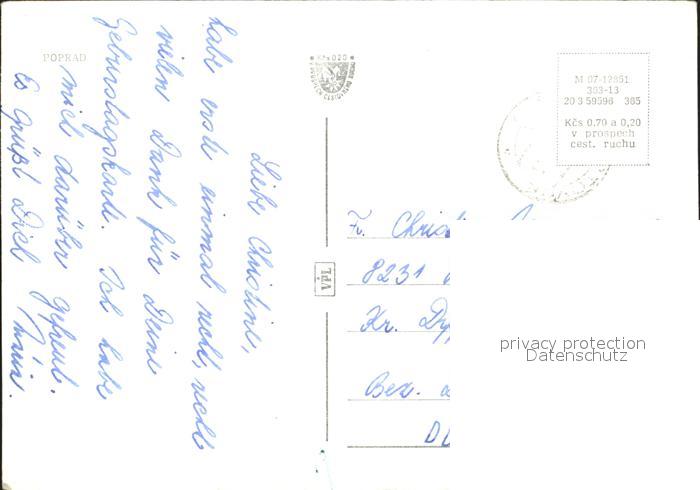 POPRAD
Liebe Christine,
habe erst einmal recht, recht
vielen Dank für Deine
Geburstagskarte. Ich habe
mich darüber gefreut.
Es grüßt Dich
Kčs 0,20
VPL
M 07-12851
303-13
20 3 59598 385
Kčs 0.70 a 0,20
v prospech
cest. ruchu
Fr. Christi
8231
Kr.
Bez.
privacy protection
Datenschutz